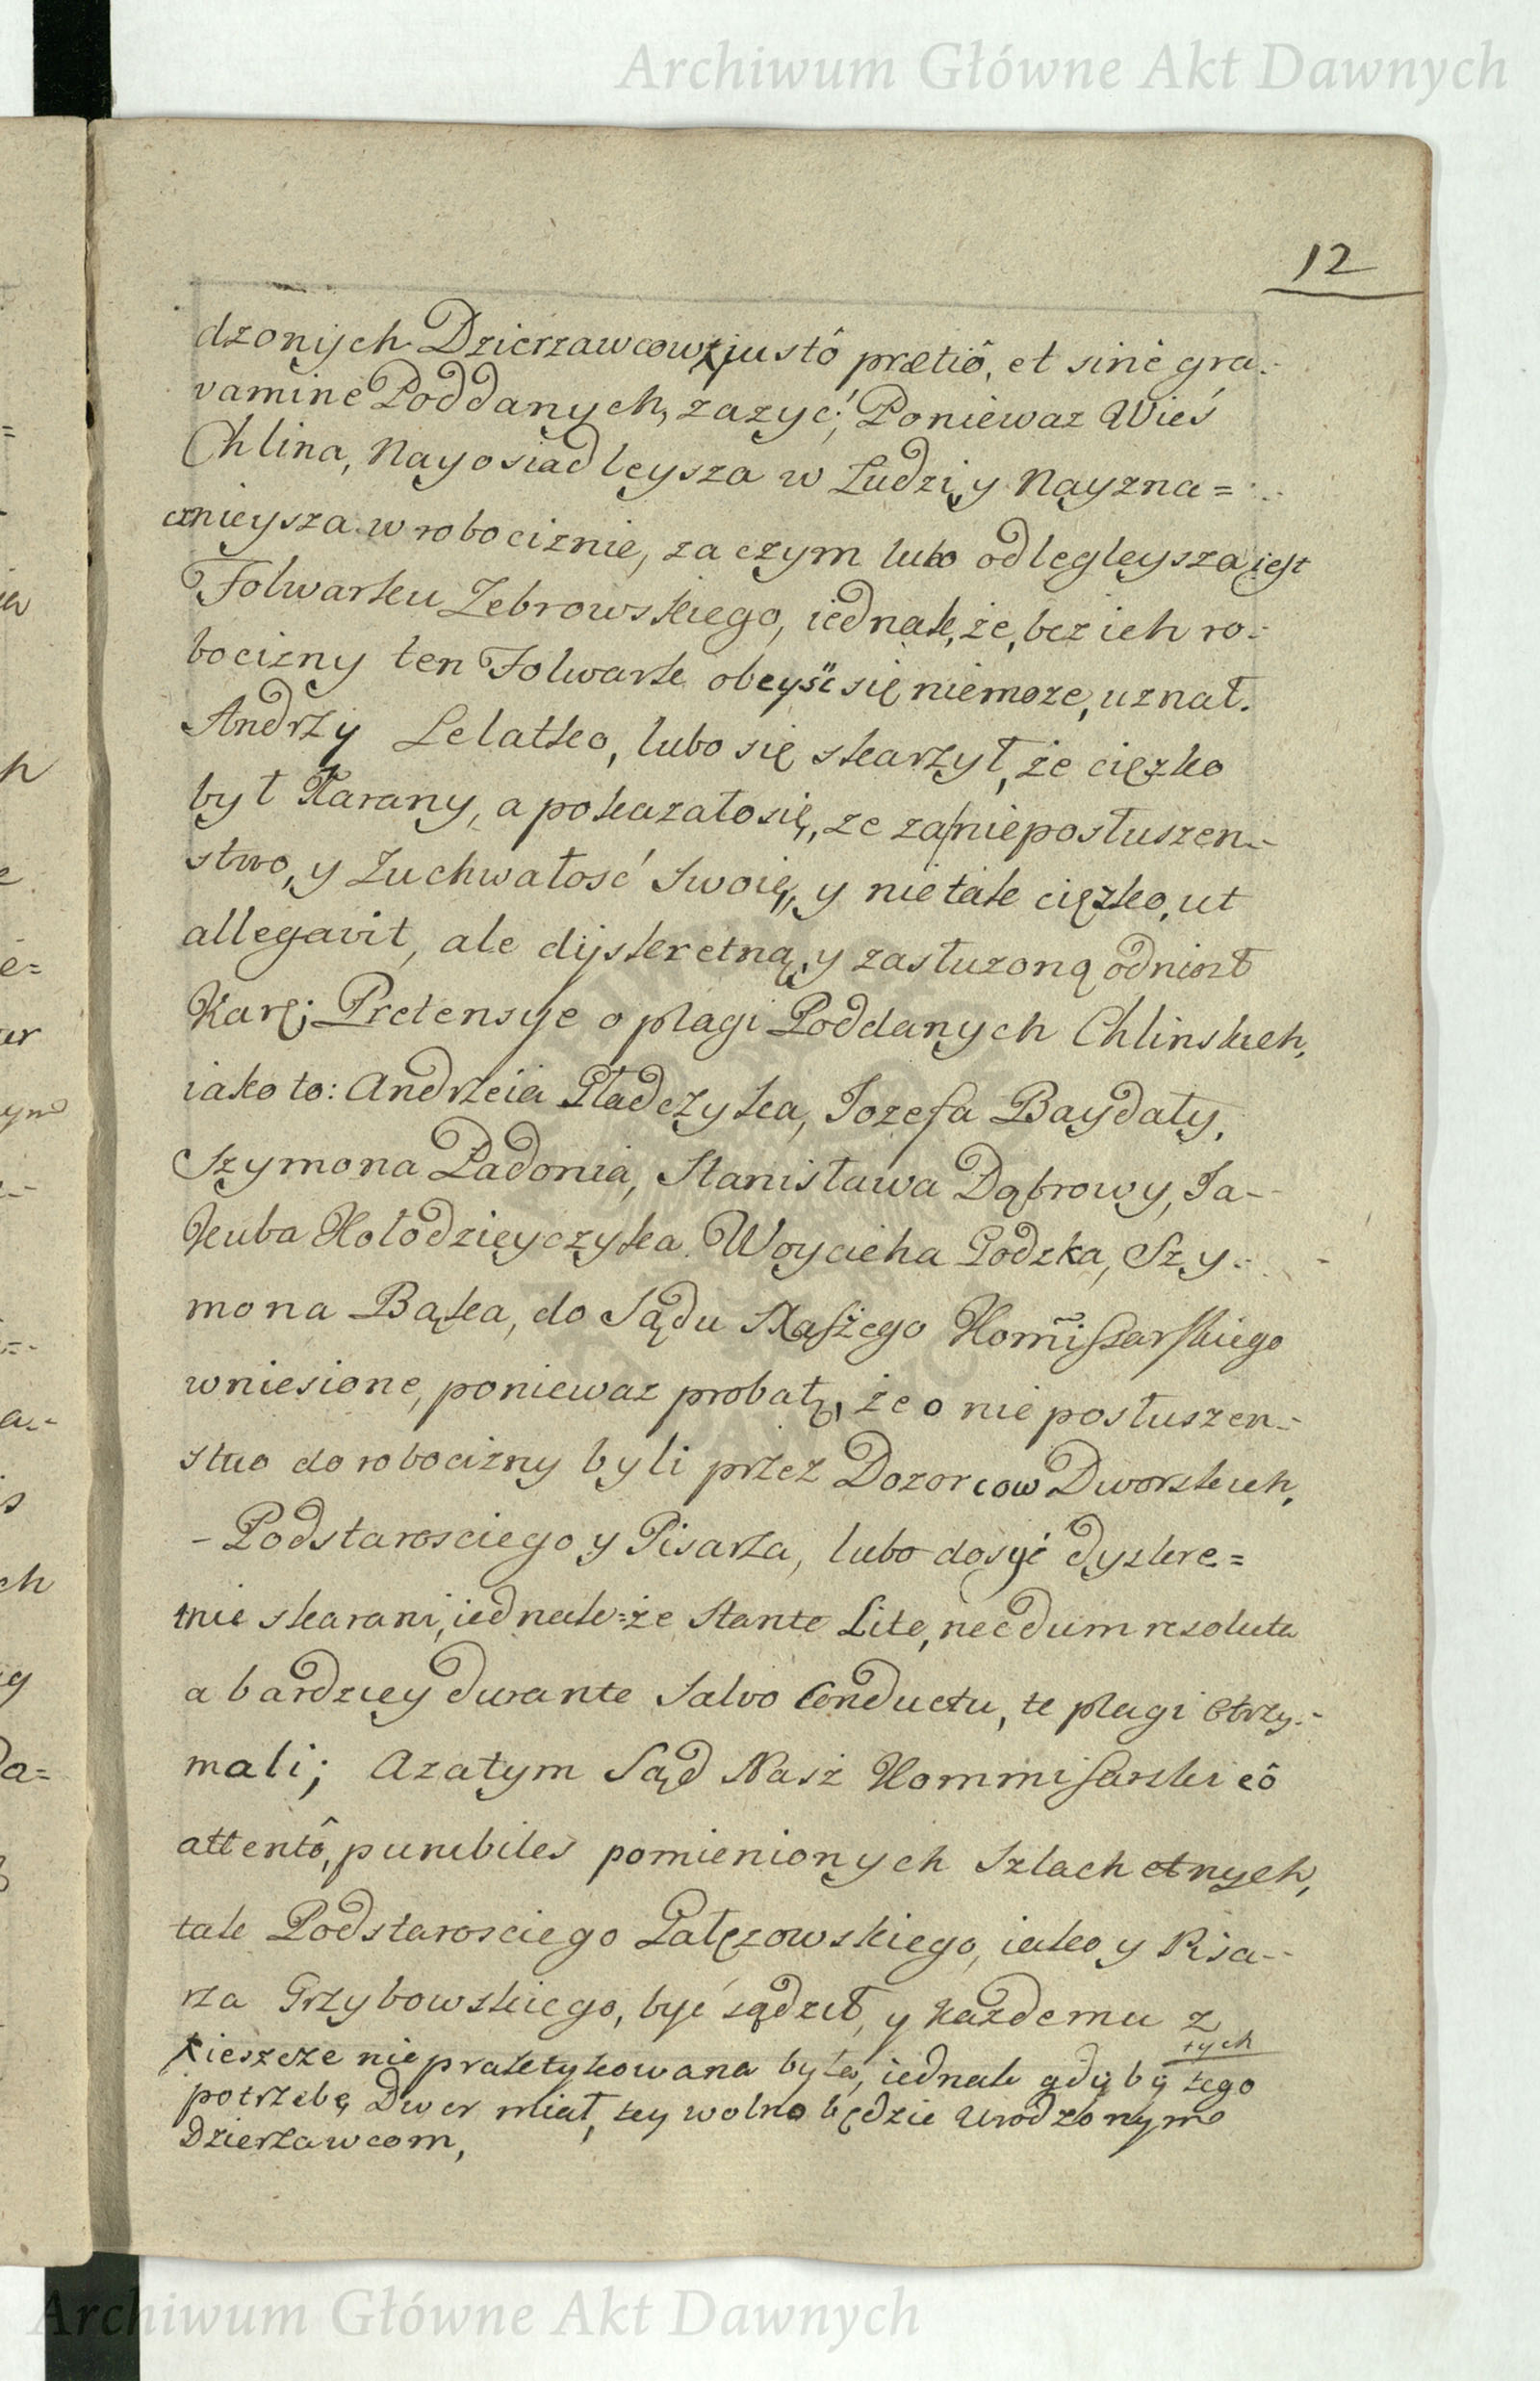 Archiwum Główne Akt Dawnych
12
dzonych Dzierzawcow justô prætiô, et sinè gra-
vamine Poddanych, zazyć; Poniewaz Wieś
Chlina, Nayosiadleysza w Ludzi y Nayzna=
cznieysza w robociznie, zaczym lubo odlegleysza iest
Folwarku Zebrowskiego, iednak, że, bez ich ro-
bocizny ten Folwark obeyść się niemoze, uznał.
Andrzy Lelatko, lubo się skarzył, że cięzko
był Karany, a pokazało się, ze za nieposłuszen-
stwo, y Zuchwałość Swoię, y nie tak cięzko, ut
allegavit, ale dyskretną y zasłuzoną odniosł
Karę; Pretensye o plagi Poddanych Chlinskich,
iako to: Andrzeia Władczyka, Jozefa Baydały,
Szymona Padonia, Stanisława Dąbrowy, Ja-
kuba Kołodzieyczyka Woyciecha Podzka, Szy-
mona Bąka, do Sądu Naszego Kom̃issarskiego
wniesione, poniewaz probatę, że o nieposłuszen-
stwo do robocizny byli przez Dozorcow Dworskich,
- Podstarosciego y Pisarza, lubo dosyć dyskre=
tnie skarani, iednak=że Stante Lite, necdum resoluta
a bardziey durante Salvo Conductu, te plagi otrzy-
mali; Azatym Sąd Nasz Kommissarski eô
attentô, punibiles pomienionych Szlachetnych,
tak Podstarosciego Pałęzowskiego, iako y Pisa-
rza Grzybowskiego, być sądził, y kazdemu z
tych
ieszcze nie praktykowana była, iednak gdy by tego
potrzebę Dwor miał, tey wolno będzie Urodzonym
Dzierzawcom,
Archiwum Główne Akt Dawnych